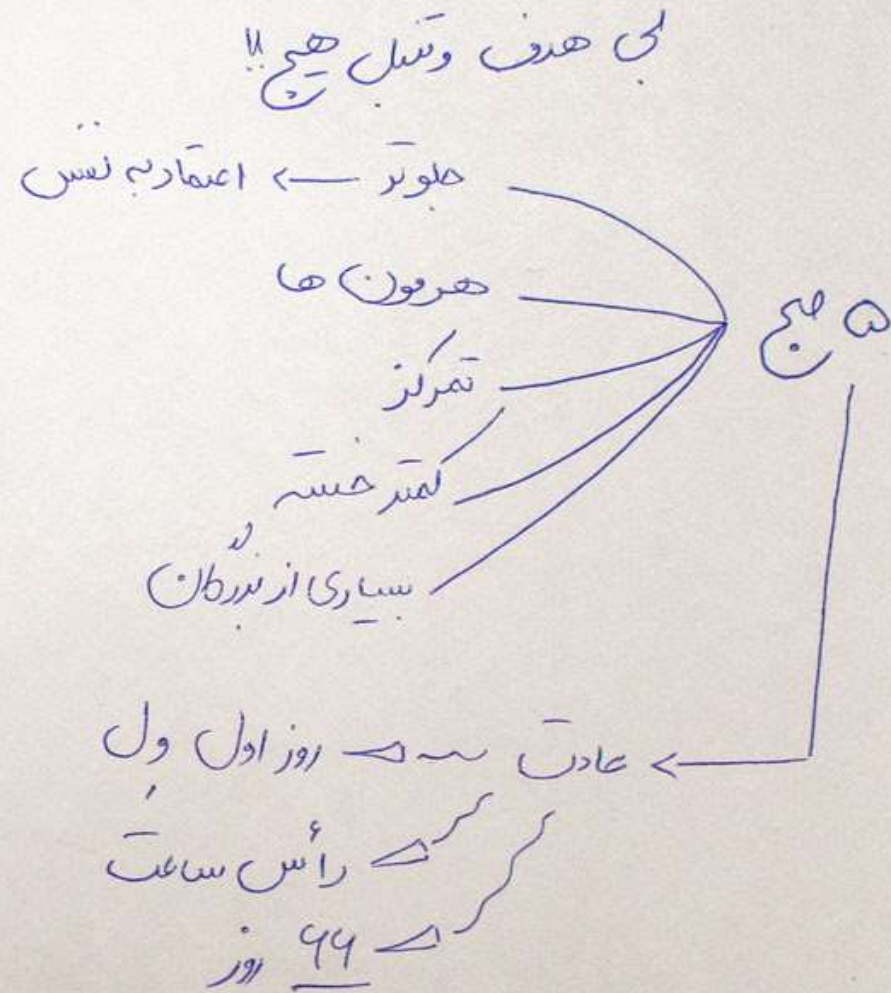 بی هدف و تنبل هیچ!!
۵ صبح
جلوتر ← اعتماد به نفس
هرمون ها
تمرکز
کمتر خسته
بسیاری از بزرگان
عادت ← روز اول ول
رأس ساعت
۶۶ روز